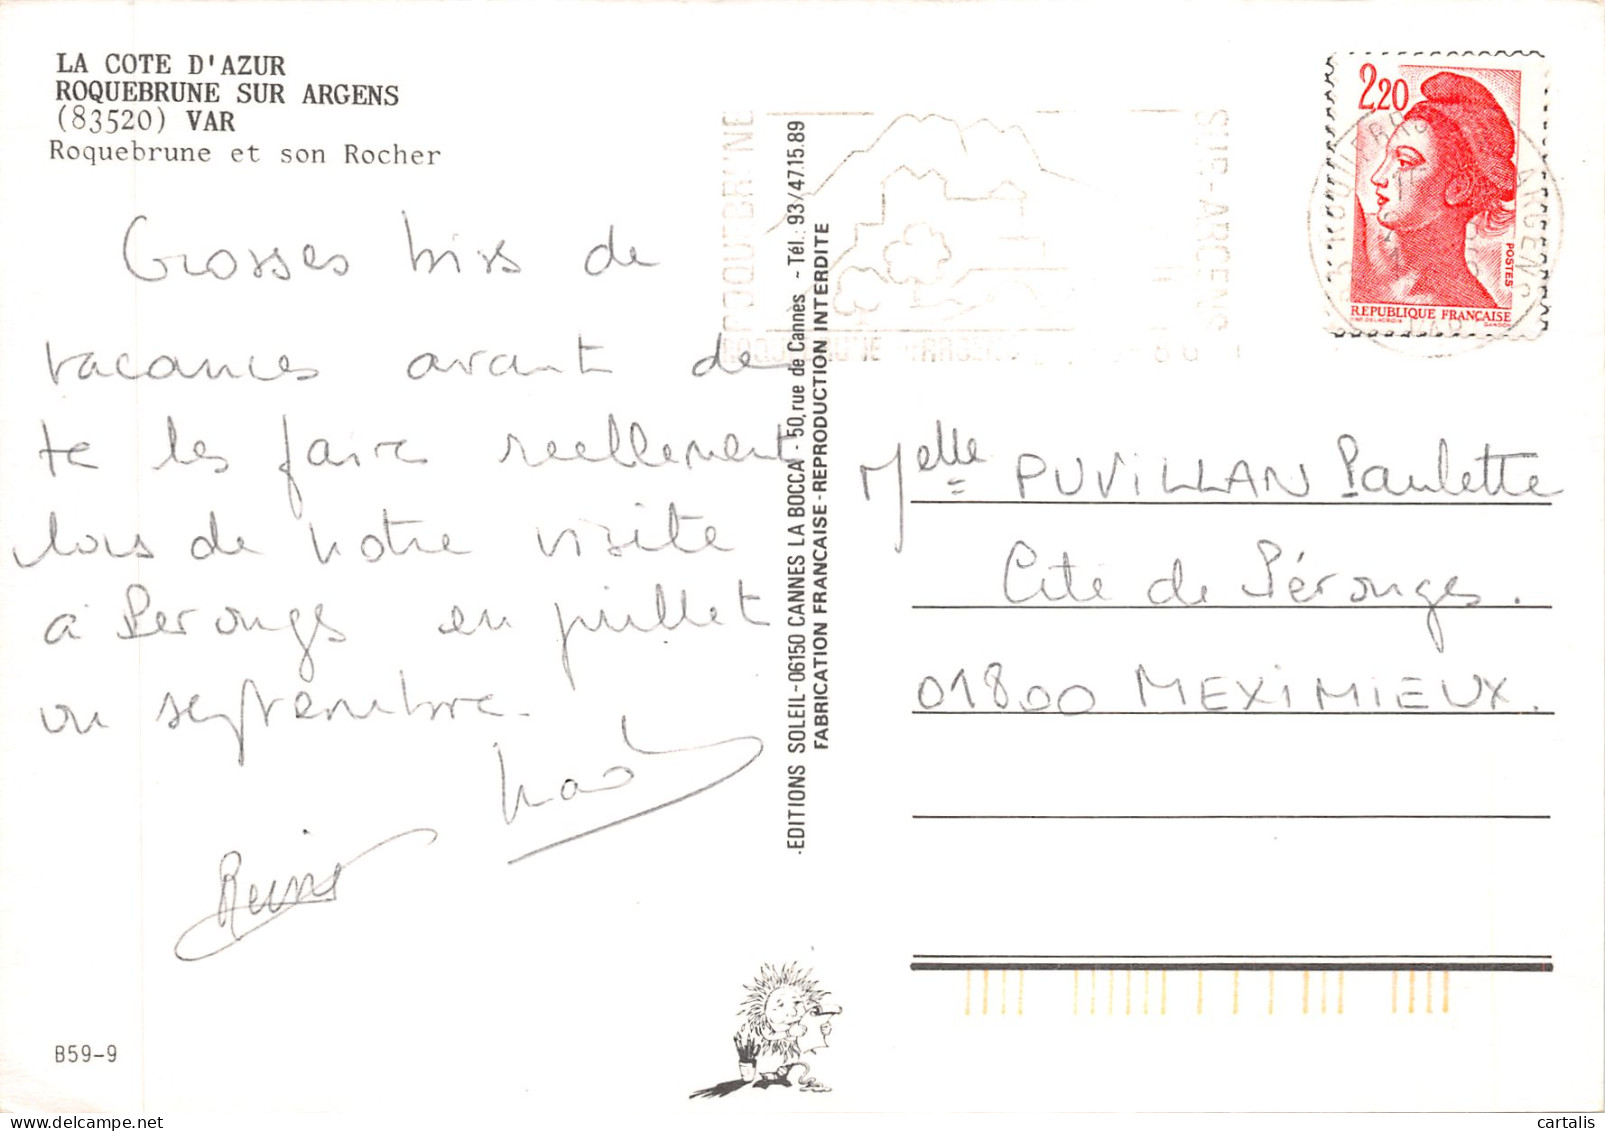 LA COTE D'AZUR
ROQUEBRUNE SUR ARGENS
(83520) VAR
Roquebrune et son Rocher
Grosses bises de
vacances avant de
te les faire reellement
lors de notre visite
à Perouges en juillet
ou septembre.
B59-9
EDITIONS SOLEIL-06150 CANNES LA BOCCA - 50, rue de Cannes ~ Tél.: 93/47.15.89
FABRICATION FRANCAISE-REPRODUCTION INTERDITE
SUR-ARGENS
2,20
POSTES
REPUBLIQUE FRANÇAISE
GANDON
ARGENS
VAR
Melle PUVILLAN Paulette
Cité de Pérouges.
01800 MEXIMIEUX.
cartalis